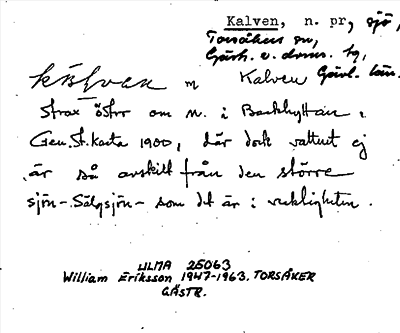 Kalven, n. pr, sjö,
Torsåkers sn,
Gästr. v. doms. hg,
Kalven Gävl. län.
strax öster om N. i Backhyttan i
Gen.St.Karta 1900, där dock vattnet ej
är så avskilt från den större
sjön - Sälgsjön - som det är i verkligheten.
ULMA 25063
William Eriksson 1947-1963. TORSÅKER
GÄSTR.